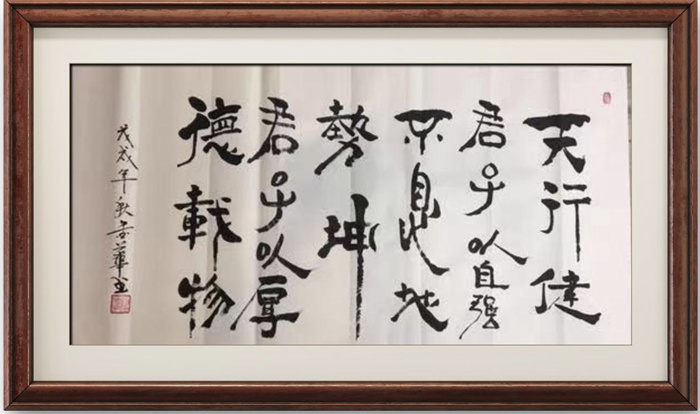 天行健
君子以自强
不息地
勢坤
君子以厚
德載物
戊戌年秋